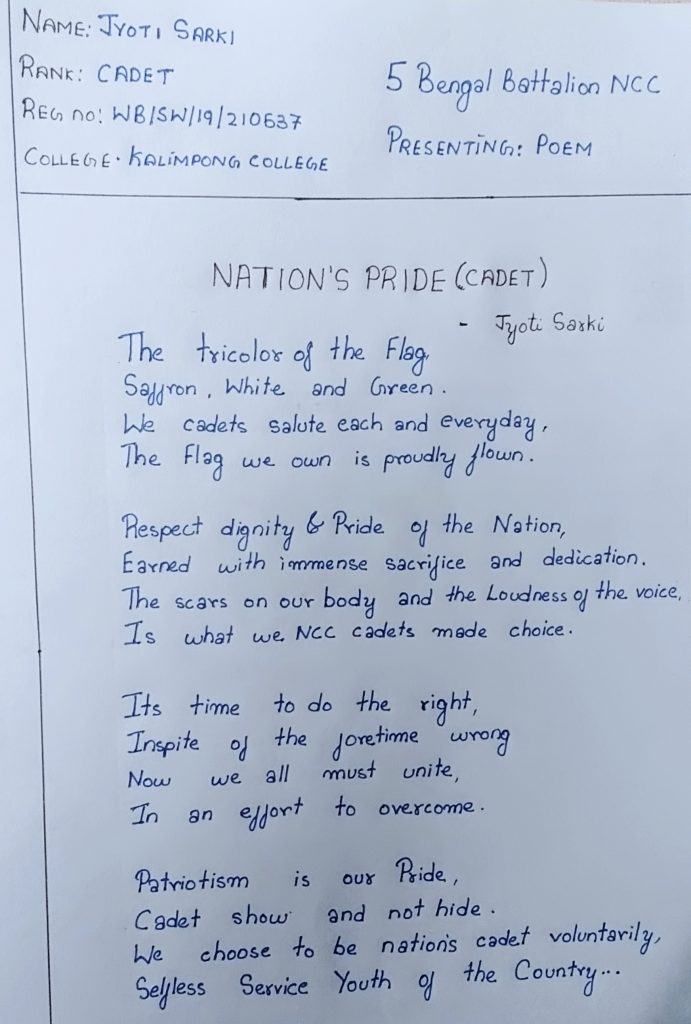 NAME: JYOTI SARKI
RANK: CADET
REG no: WB/SW/19/210637
COLLEGE. KALIMPONG COLLEGE
5 Bengal Battalion NCC
PRESENTING: POEM
NATION'S PRIDE (CADET)
- Jyoti Sarki
The tricolor of the Flag,
Saffron, White and Green.
We cadets salute each and everyday,
The Flag we own is proudly flown.
Respect dignity & Pride of the Nation,
Earned with immense sacrifice and dedication.
The scars on our body and the Loudness of the voice,
Is what we NCC cadets made choice.
Its time to do the right,
Inspite of the foretime wrong
Now we all must unite,
In an effort to overcome.
Patriotism is our Pride,
Cadet show and not hide.
We choose to be nation's cadet voluntarily,
Selfless Service Youth of the Country...